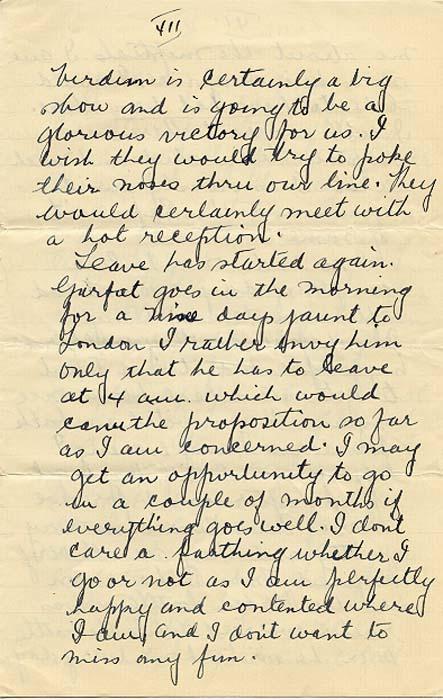 VII
Verdun is certainly a big
show and is going to be a
glorious victory for us. I
wish they would try to poke
their noses thru our line. They
would certainly meet with
a hot reception.
Leave has started again.
Garfat goes in the morning
for a nine days jaunt to
London I rather envy him
only that he has to leave
at 4 am. which would
can the proposition so far
as I am concerned. I may
get an opportunity to go
in a couple of months if
everything goes well. I dont
care a farthing whether I
go or not as I am perfectly
happy and contented where
I am, and I don't want to
miss any fun.